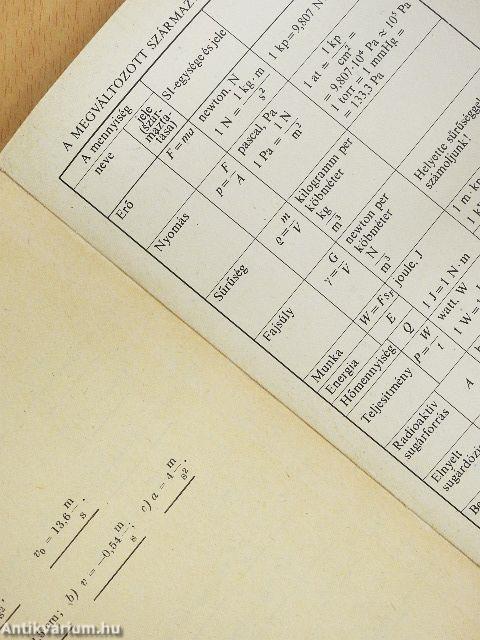 A MEGVÁLTOZOTT SZÁRMAZ
A mennyiség
neve
jele
(szár-
mazta-
tása)
SI-egysége és jele
Erő
newton, N
1 N = 1 kg · m / s²
1 kp = 9,807 N
Nyomás
p = F / A
pascal, Pa
1 Pa = 1 N / m²
1 at = 1 kp / cm² =
= 9,807·10⁴ Pa ≈ 10⁵ Pa
1 torr = 1 mmHg =
= 133,3 Pa
Sűrűség
ϱ = m / V
kilogramm per
köbméter
kg / m³
Fajsúly
γ = G / V
newton per
köbméter
N / m³
Helyette sűrűségget
számoljunk!
Munka
Energia
Hőmennyiség
E
Q
joule, J
1 J = 1 N · m
Teljesítmény
watt, W
1 W = 1
Radioaktív
sugárforrás
A
Elnyelt
sugárdózis
v₀ = 13,6 m / s .
cm; b) v = −0,54 m / s ; c) a = 4 m / s² .
Antikvarium.hu